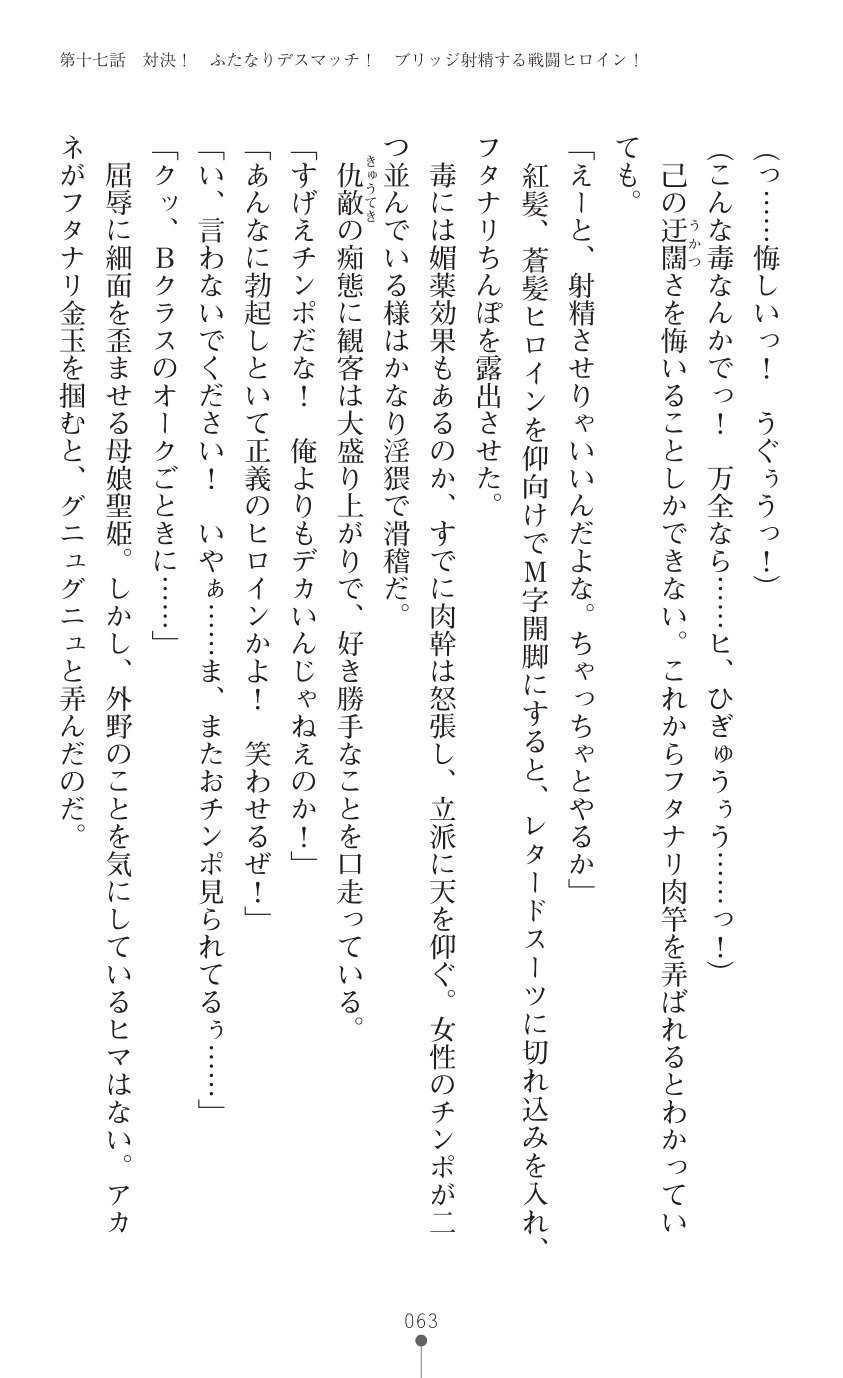 第十七話　対決！　ふたなりデスマッチ！　ブリッジ射精する戦闘ヒロイン！
（っ……悔しいっ！　うぐぅうっ！）
（こんな毒なんかでっ！　万全なら……ヒ、ひぎゅうぅう……っ！）
己の迂闊さを悔いることしかできない。これからフタナリ肉竿を弄ばれるとわかってい
うかつ
ても。
「えーと、射精させりゃいいんだよな。ちゃっちゃとやるか」
紅髪、蒼髪ヒロインを仰向けでＭ字開脚にすると、レタードスーツに切れ込みを入れ、
フタナリちんぽを露出させた。
毒には媚薬効果もあるのか、すでに肉幹は怒張し、立派に天を仰ぐ。女性のチンポが二
つ並んでいる様はかなり淫猥で滑稽だ。
仇敵の痴態に観客は大盛り上がりで、好き勝手なことを口走っている。
きゅうてき
「すげえチンポだな！　俺よりもデカいんじゃねえのか！」
「あんなに勃起しといて正義のヒロインかよ！　笑わせるぜ！」
「い、言わないでください！　いやぁ……ま、またおチンポ見られてるぅ……」
「クッ、Ｂクラスのオークごときに……」
屈辱に細面を歪ませる母娘聖姫。しかし、外野のことを気にしているヒマはない。アカ
ネがフタナリ金玉を掴むと、グニュグニュと弄んだのだ。
063